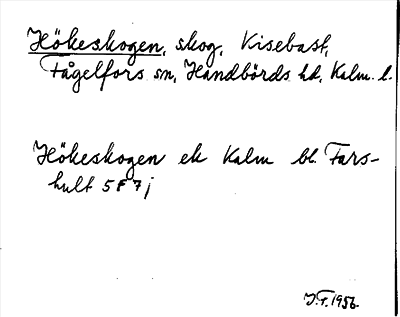 Hökeskogen, skog, Kisebast,
Fågelfors sn, Handbörds hd, Kalm. l.
Hökeskogen ek Kalm bl. Fars-
hult 5F7j
J.F. 1956.